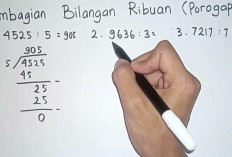 mbagian Bilangan Ribuan (Porogap
4525 : 5 = 905 2. 9636 : 3 = 3. 7217 : 7
905
5 / 4525
45 -
25
25 -
0